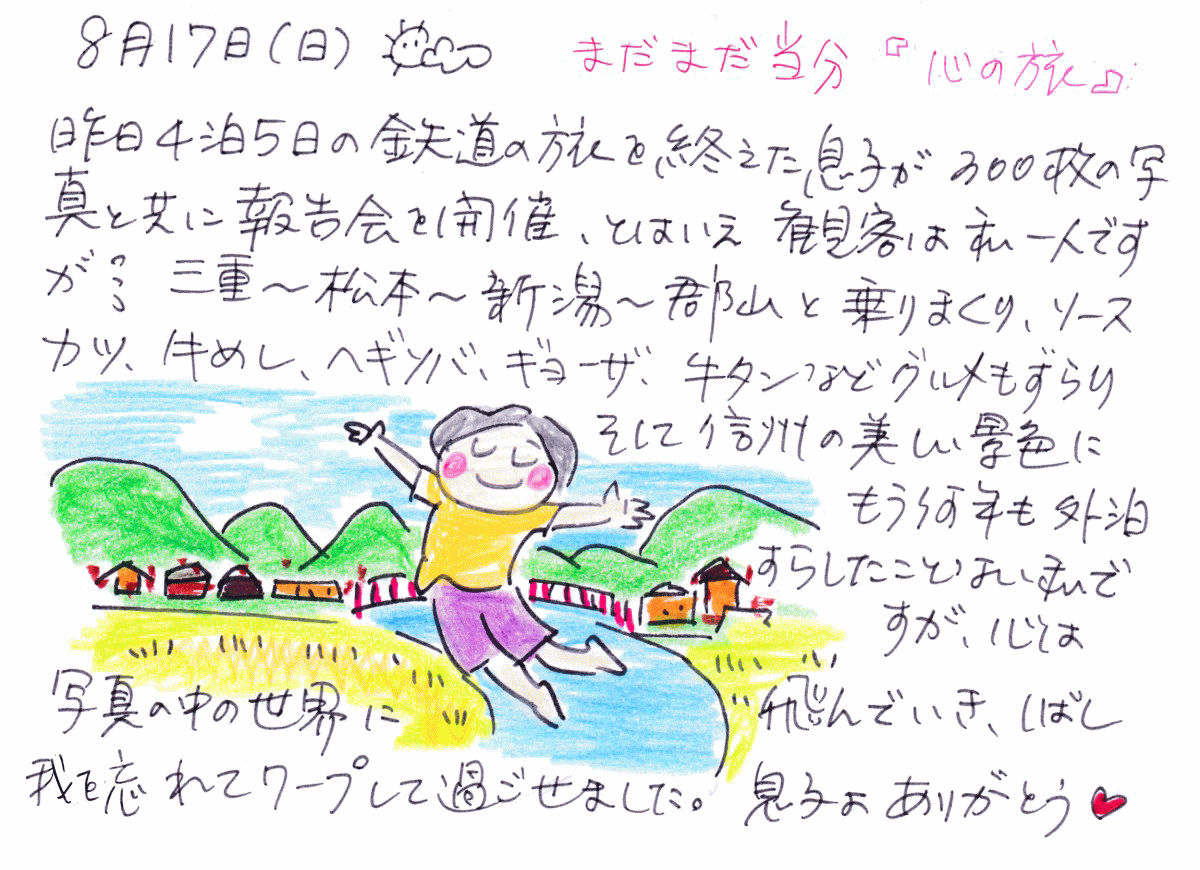 8月17日(日)
まだまだ当分『心の旅』
昨日4泊5日の鉄道の旅を終えた息子が300枚の写
真と共に報告会を開催、とはいえ観客は私一人です
が… 三重〜松本〜新潟〜郡山と乗りまくり、ソース
カツ、牛めし、ヘギソバ、ギョーザ、牛タンなどグルメもずらり
そして信州の美しい景色に
もう何年も外泊
すらしたことない私で
すが、心は
写真の中の世界に 飛んでいき、しばし
我を忘れてワープして過ごせました。息子よありがとう